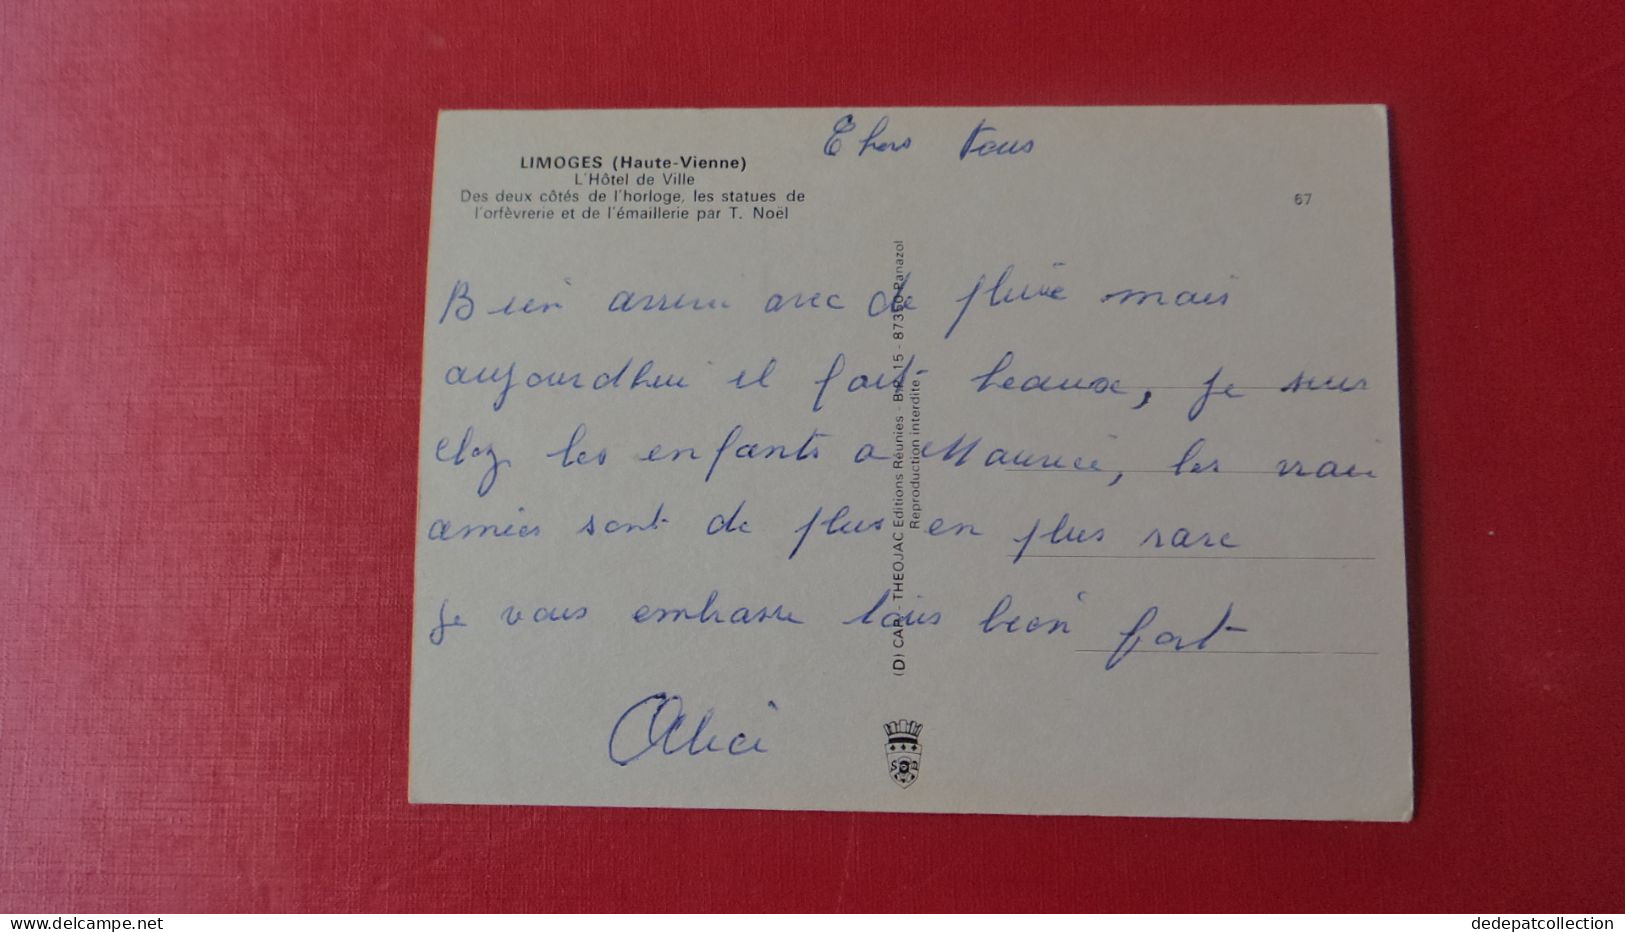 Chers Tous
LIMOGES (Haute-Vienne)
L'Hôtel de Ville
Des deux côtés de l'horloge, les statues de
l'orfèvrerie et de l'émaillerie par T. Noël
67
Bien arrivé avec de pluie mais
aujourdhui il fait beaux, je suis
chez les enfants a Maurice, les vrai
amies sont de plus en plus rare
je vous embrasse tous bien fort
Alice
(D) CAP - THEOJAC Editions Réunies - B.P. 15 - 87350 Panazol
Reproduction interdite
delcampe.net
dedepatcollection